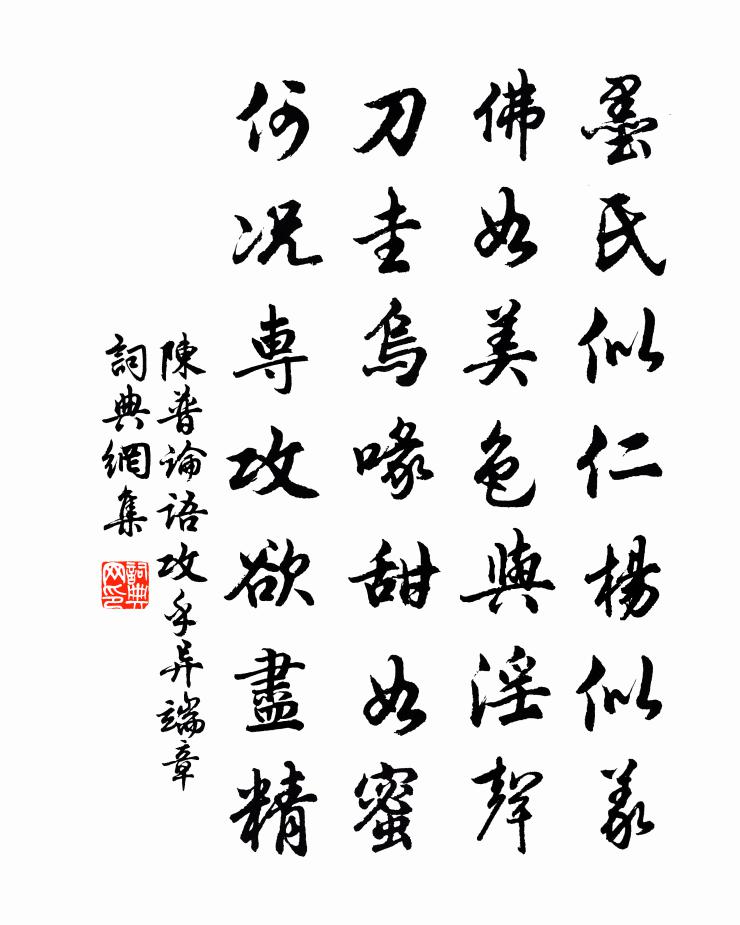 墨氏似仁楊似義
佛如美色與淫聲
刀圭烏喙甜如蜜
何况專攻欲盡精
陳普論語攻乎异端章
詞典網集
詞典网印